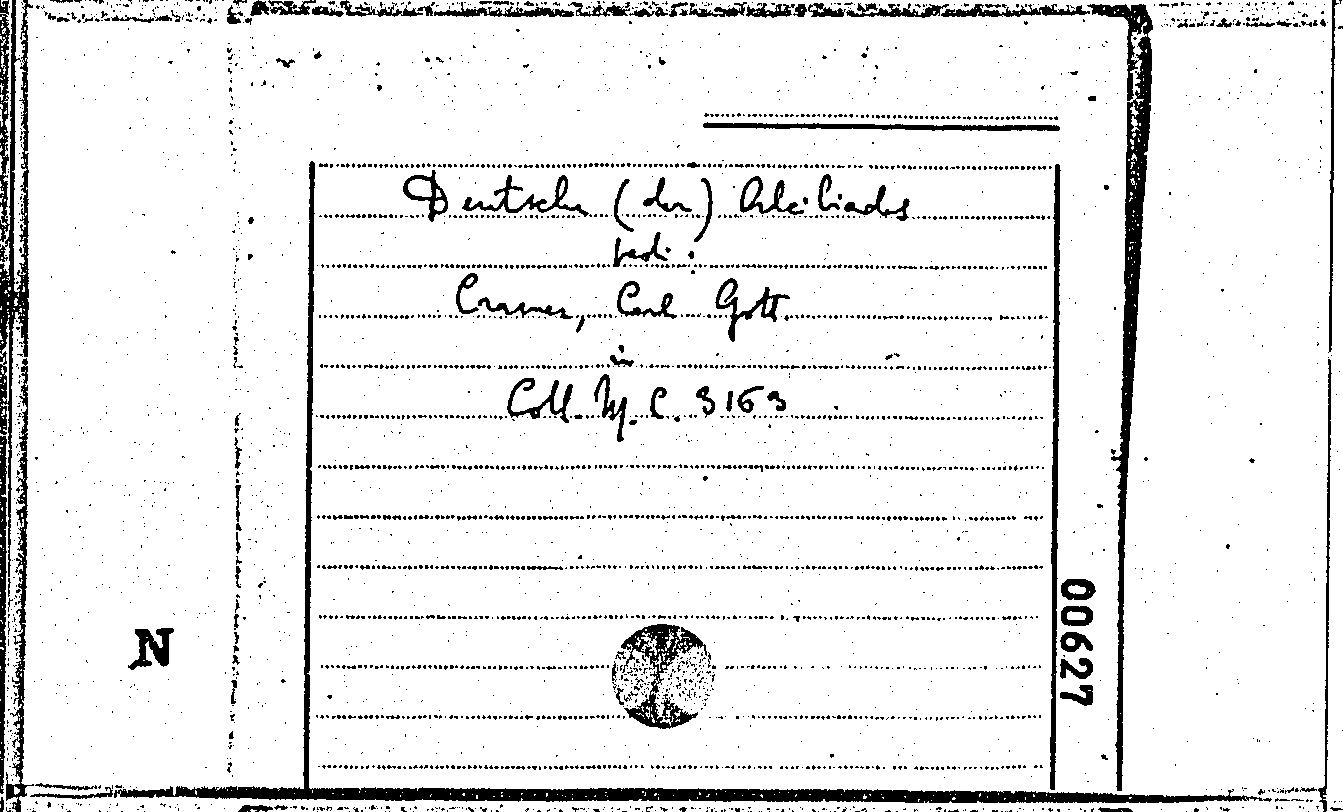 Deutsche (der) Alcibiades
vedi:
Cramer, Carl Gott.
in
Coll. M. C. 3163
N
00627